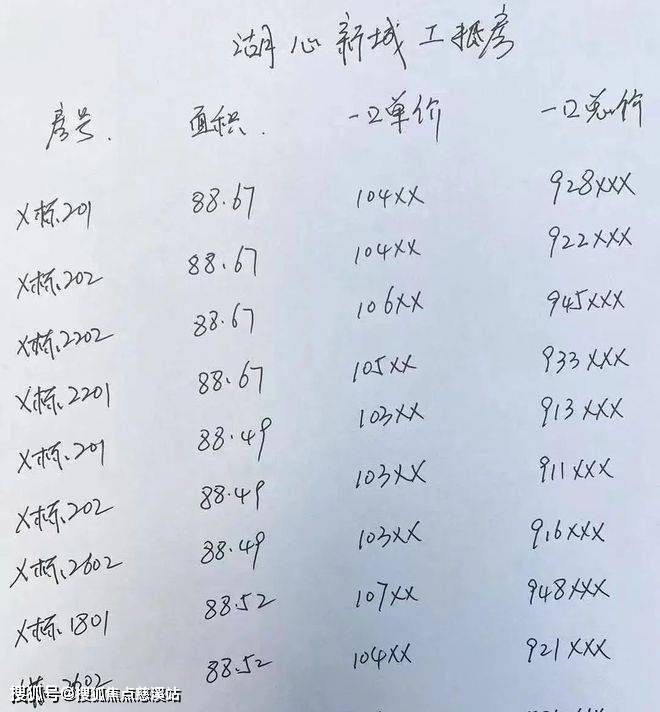 湖心新城工抵房
房号. 面积. 一口单价 一口总价
X栋.201 88.67 104XX 928XXX
X栋.202 88.67 104XX 922XXX
X栋.2202 88.67 106XX 945XXX
X栋.2201 88.67 105XX 933XXX
X栋.201 88.49 103XX 913XXX
X栋.202 88.49 103XX 911XXX
X栋.2602 88.49 103XX 916XXX
X栋.1801 88.52 107XX 948XXX
2602 88.52 104XX 921XXX
搜狐号@搜狐焦点慈溪站